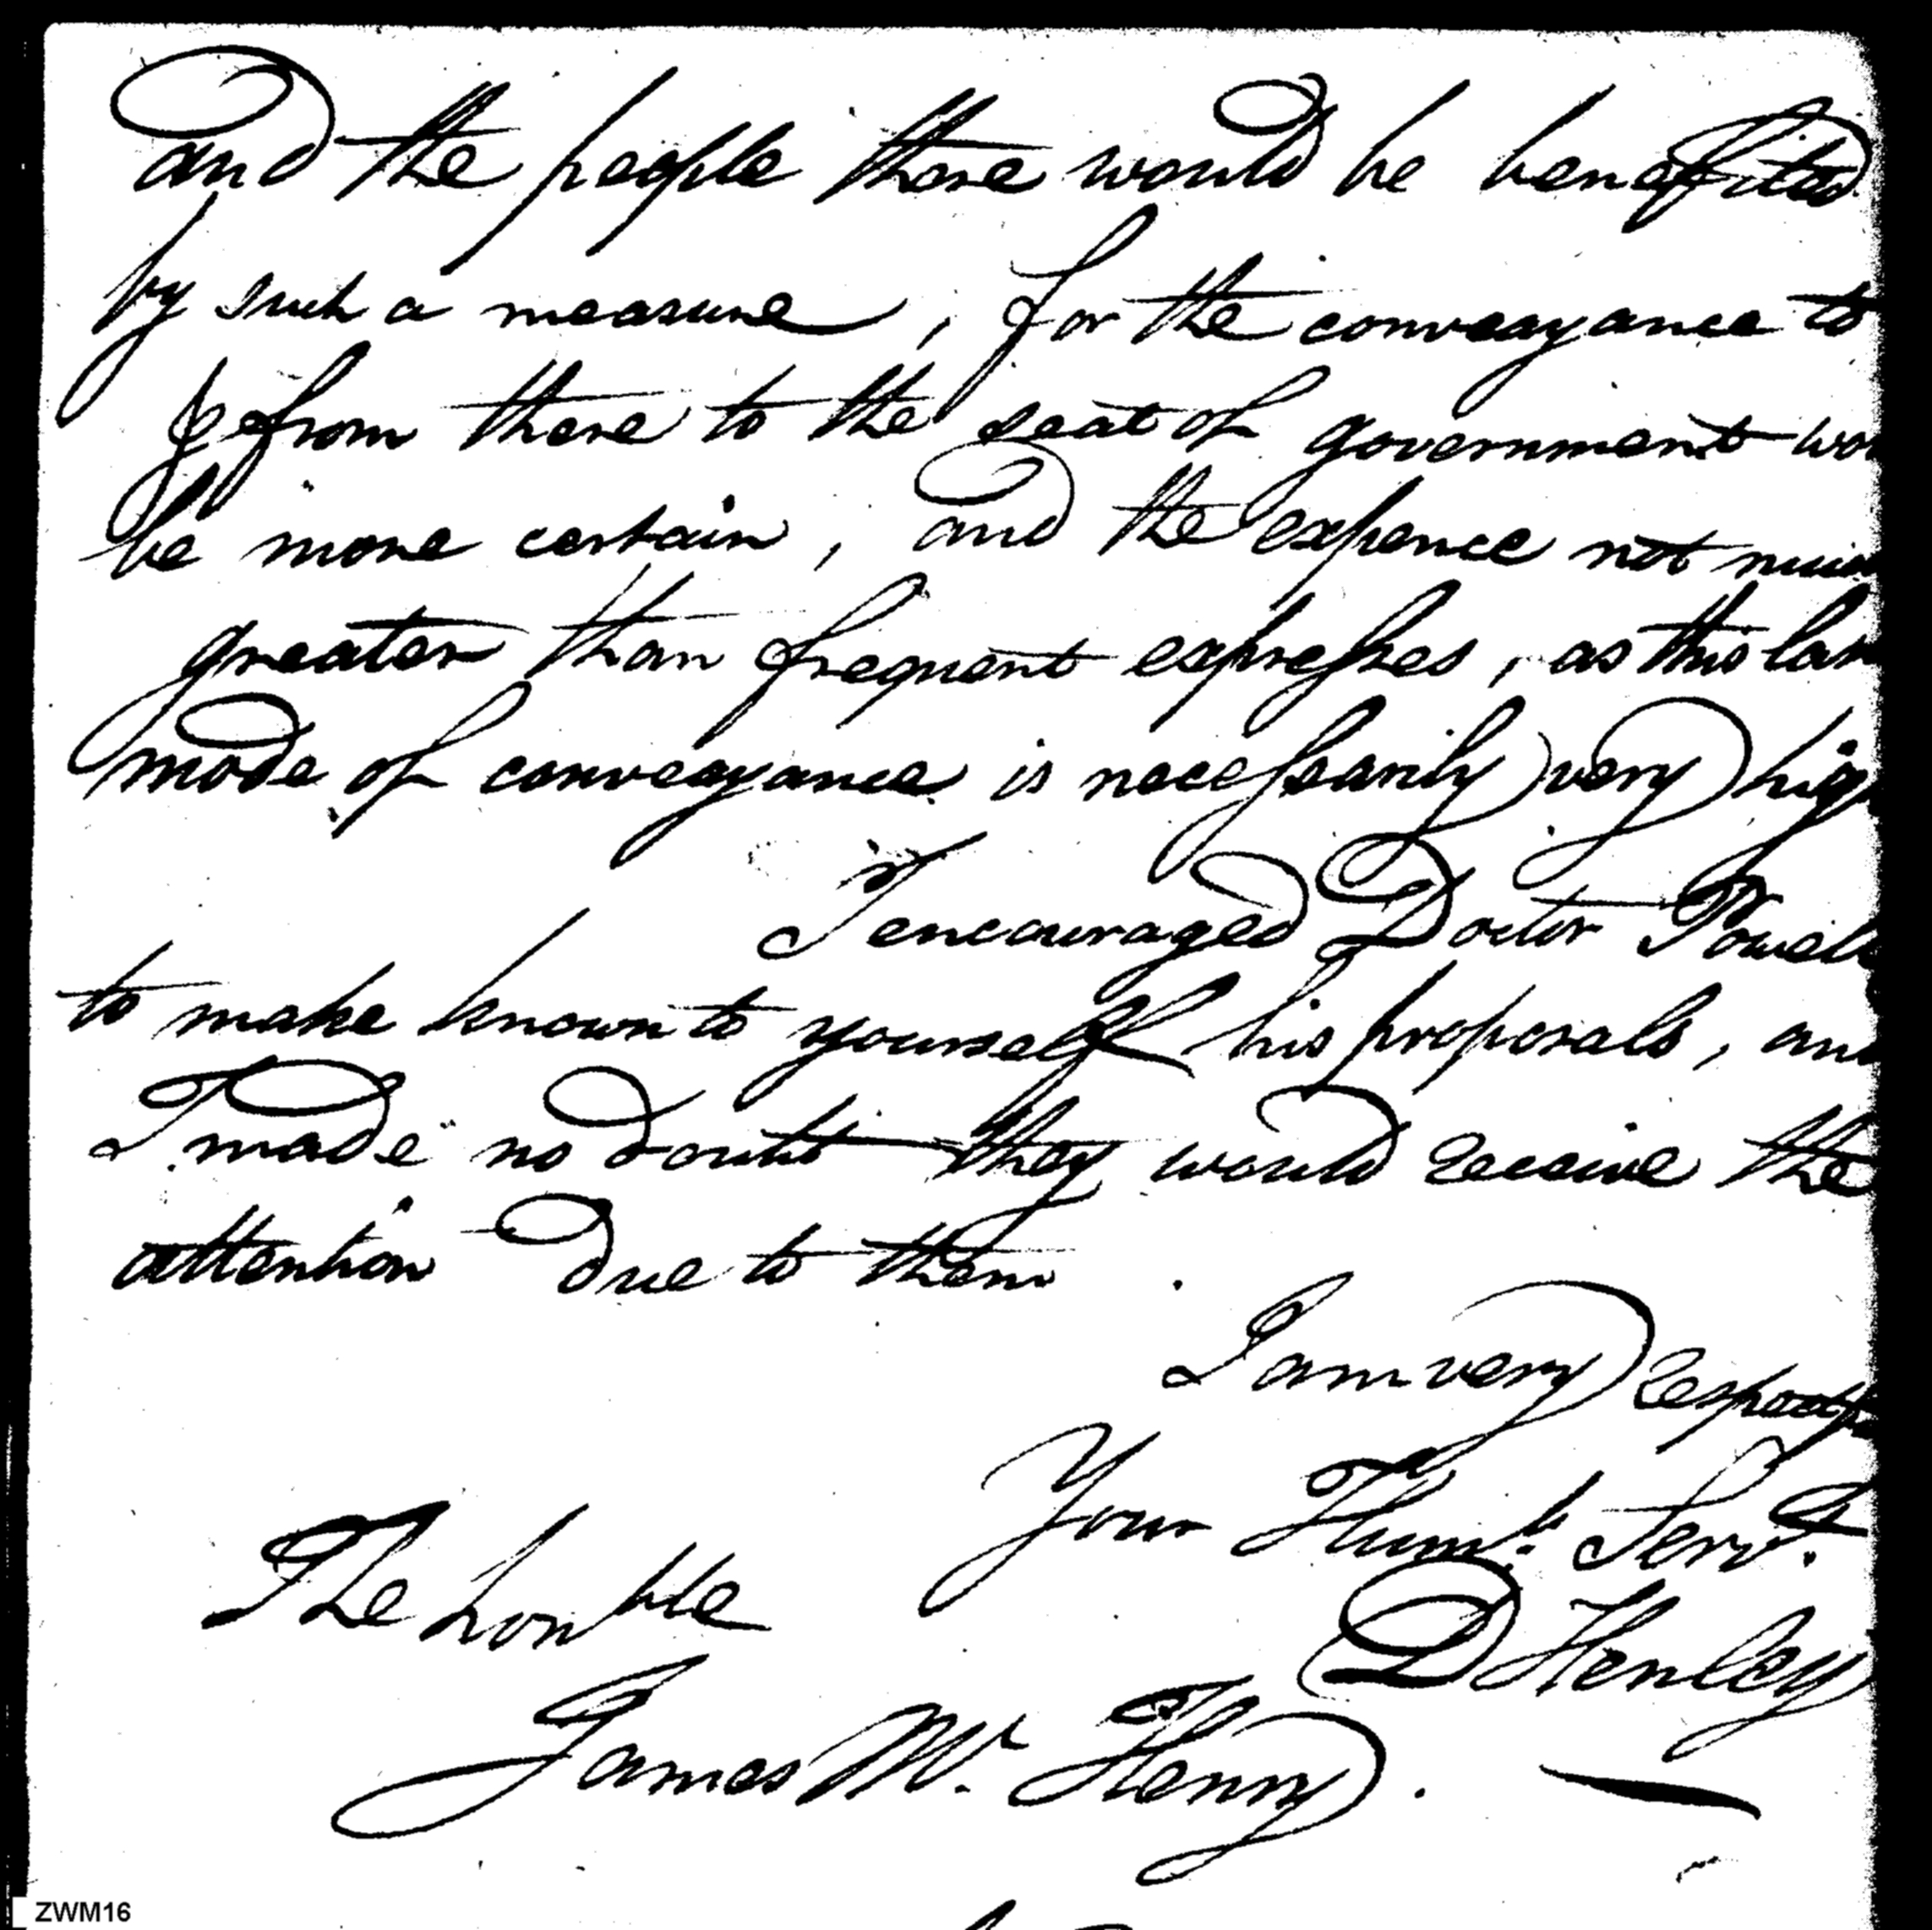 and the people there would be benefitted
by such a measure, for the conveayance to
& from there to the seat of government wou
be more certain, and the expence not
greater than frequent expresses, as this lat
mode of conveayance is necessarily very high
I encouraged Doctor Powell
to make known to yourself his proposals, and
I made no doubt they would receive the
attention due to them.
I am very respectf
Your Humb. Serv.t
D Henley
The honble
James Mc. Henry.
ZWM16